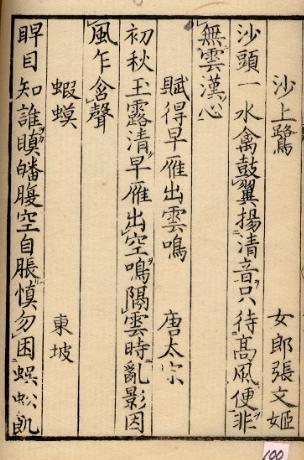 沙上鷺　女郎張文姬
沙頭一水禽鼓翼揚清音只待高風便非
無雲漢心
賦得早雁出雲鳴　唐太宗
初秋玉露清早雁出空鳴隔雲時亂影因
風乍含聲
蝦蟆　東坡
睅目知誰瞋皤腹空自脹慎勿困蜈蚣飢
100